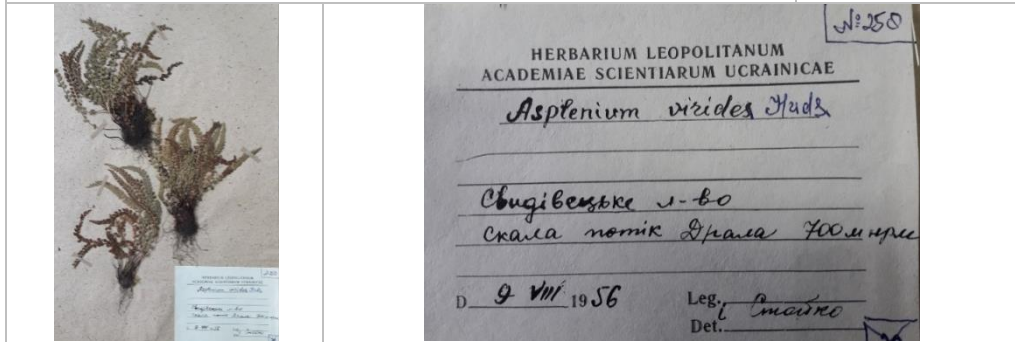 № 258
HERBARIUM LEOPOLITANUM
ACADEMIAE SCIENTIARUM UCRAINICAE
Asplenium virides Huds
Свидівецьке л-во
скала потік Драла 700 м нрм
D 9 VIII 1956
Leg. і Стойко
Det.